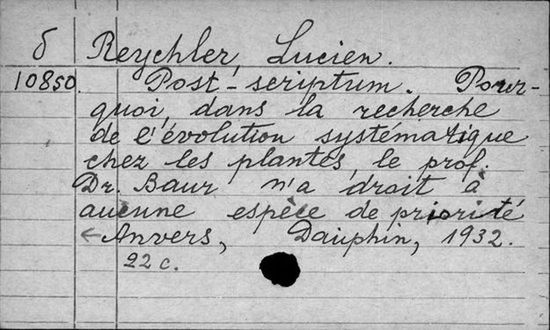 δ Reychler, Lucien.
10850. Post-scriptum. Pour-
quoi, dans la recherche
de l'évolution systématique
chez les plantes, le prof.
Dr. Baur n'a droit à
aucune espèce de priorité
← Anvers, Dauphin, 1932.
22 c.